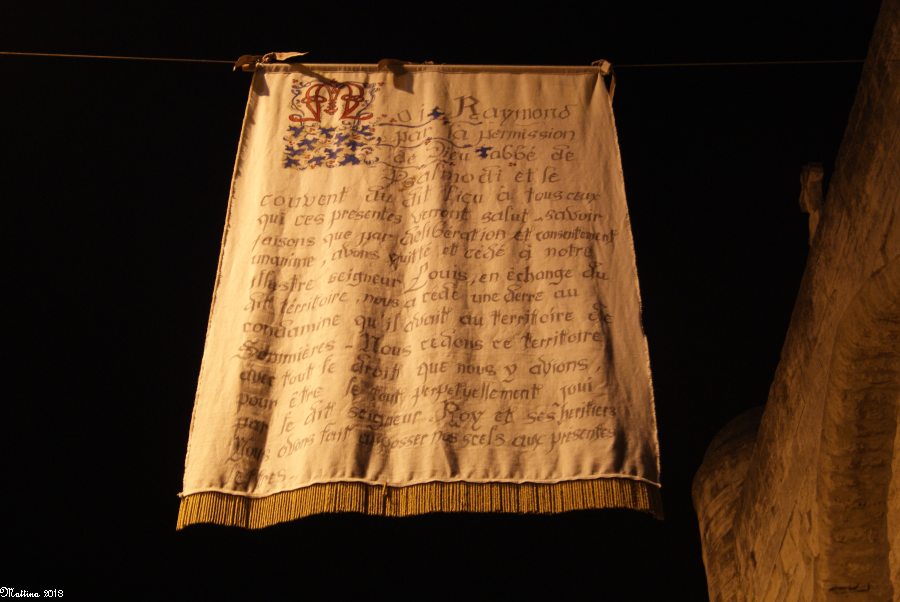 Moi, Raymond
par la permission
de Dieu abbé de
Psalmodi et le
couvent du dit lieu à tous ceux
qui ces présentes verront salut - savoir
faisons que par délibération et consentement
unanime, avons quitté et cédé à notre
illustre seigneur Louis, en échange du
dit territoire, nous a cédé une terre au
condamine qu'il avait au territoire de
Sommières - Nous cédons ce territoire
avec tout le droit que nous y avions,
pour être le tout perpétuellement joui
par le dit seigneur Roy et ses héritiers
Nous avons fait apposser nos scels aux présentes
lettres.
Mattina 2018